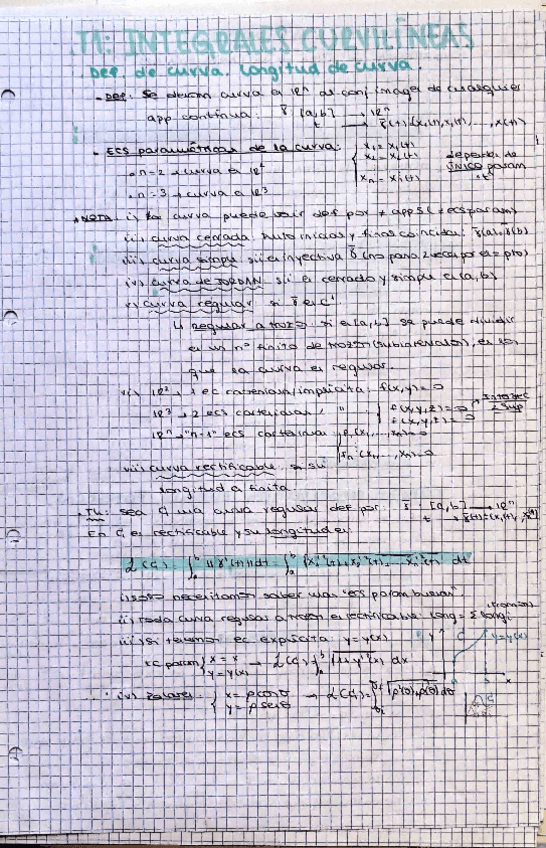 T1: INTEGRALES CURVILÍNEAS
Def. de curva. Longitud de curva.
- Def: Se denom curva a ℝⁿ al conj imagen de cualquier
app continua: γ̄ [a,b] → ℝⁿ
t → γ̄(t)=(x₁(t),x₂(t),...,xₙ(t))
- ECS paramétricas de la curva:
x₁ = x₁(t)
x₂ = x₂(t)
xₙ = xₙ(t)
depende de
ÚNICO param
"t"
· n=2 → curva en ℝ²
· n=3 → curva en ℝ³
· NOTA: i) La curva puede venir def por ≠ apps (≠ ecs param)
ii) curva cerrada: punto inicial y final coinciden: γ̄(a)=γ̄(b)
iii) curva simple si es inyectiva γ̄ (no pasa 2 veces por el = pto)
iv) curva de JORDAN si es cerrada y simple en (a,b)
v) curva regular si γ̄ es C¹
↳ Regular a trozos si en [a,b] se puede dividir
en un nº finito de trozos (subintervalos), en los
que la curva es regular.
vi) ℝ², 1 ec cartesiana/implícita: f(x,y)=0
ℝ³, 2 ecs cartesianas / " f₁(x,y,z)=0
f₂(x,y,z)=0
Intersec
2 sup
ℝⁿ, "n-1" ecs cartesianas f₁(x₁,...,xₙ)=0
(x₁,...,xₙ)=0
vii) curva rectificable si su
longitud es finita.
· Th: Sea C una curva regular def por: γ̄ [a,b] → ℝⁿ
t → γ̄(t)=(x₁(t),
C es rectificable y su longitud es:
L(C) = ∫ₐᵇ ||γ'(t)||dt = ∫ₐᵇ √x₁'²(t)+x₂'²(t)+...xₙ'²(t) dt
i) solo necesitamos saber unas "ecs param buenas"
ii) toda curva regular a trozos es rectificable. Long = Σ long
iii) si tenemos ec explícita y=y(x)
y=y(x)
ec param x = x
y = y(x) → L(C)=∫ₐᵇ √1+y'²(x) dx
iv) Polares: x = ρcosθ
y = ρsenθ